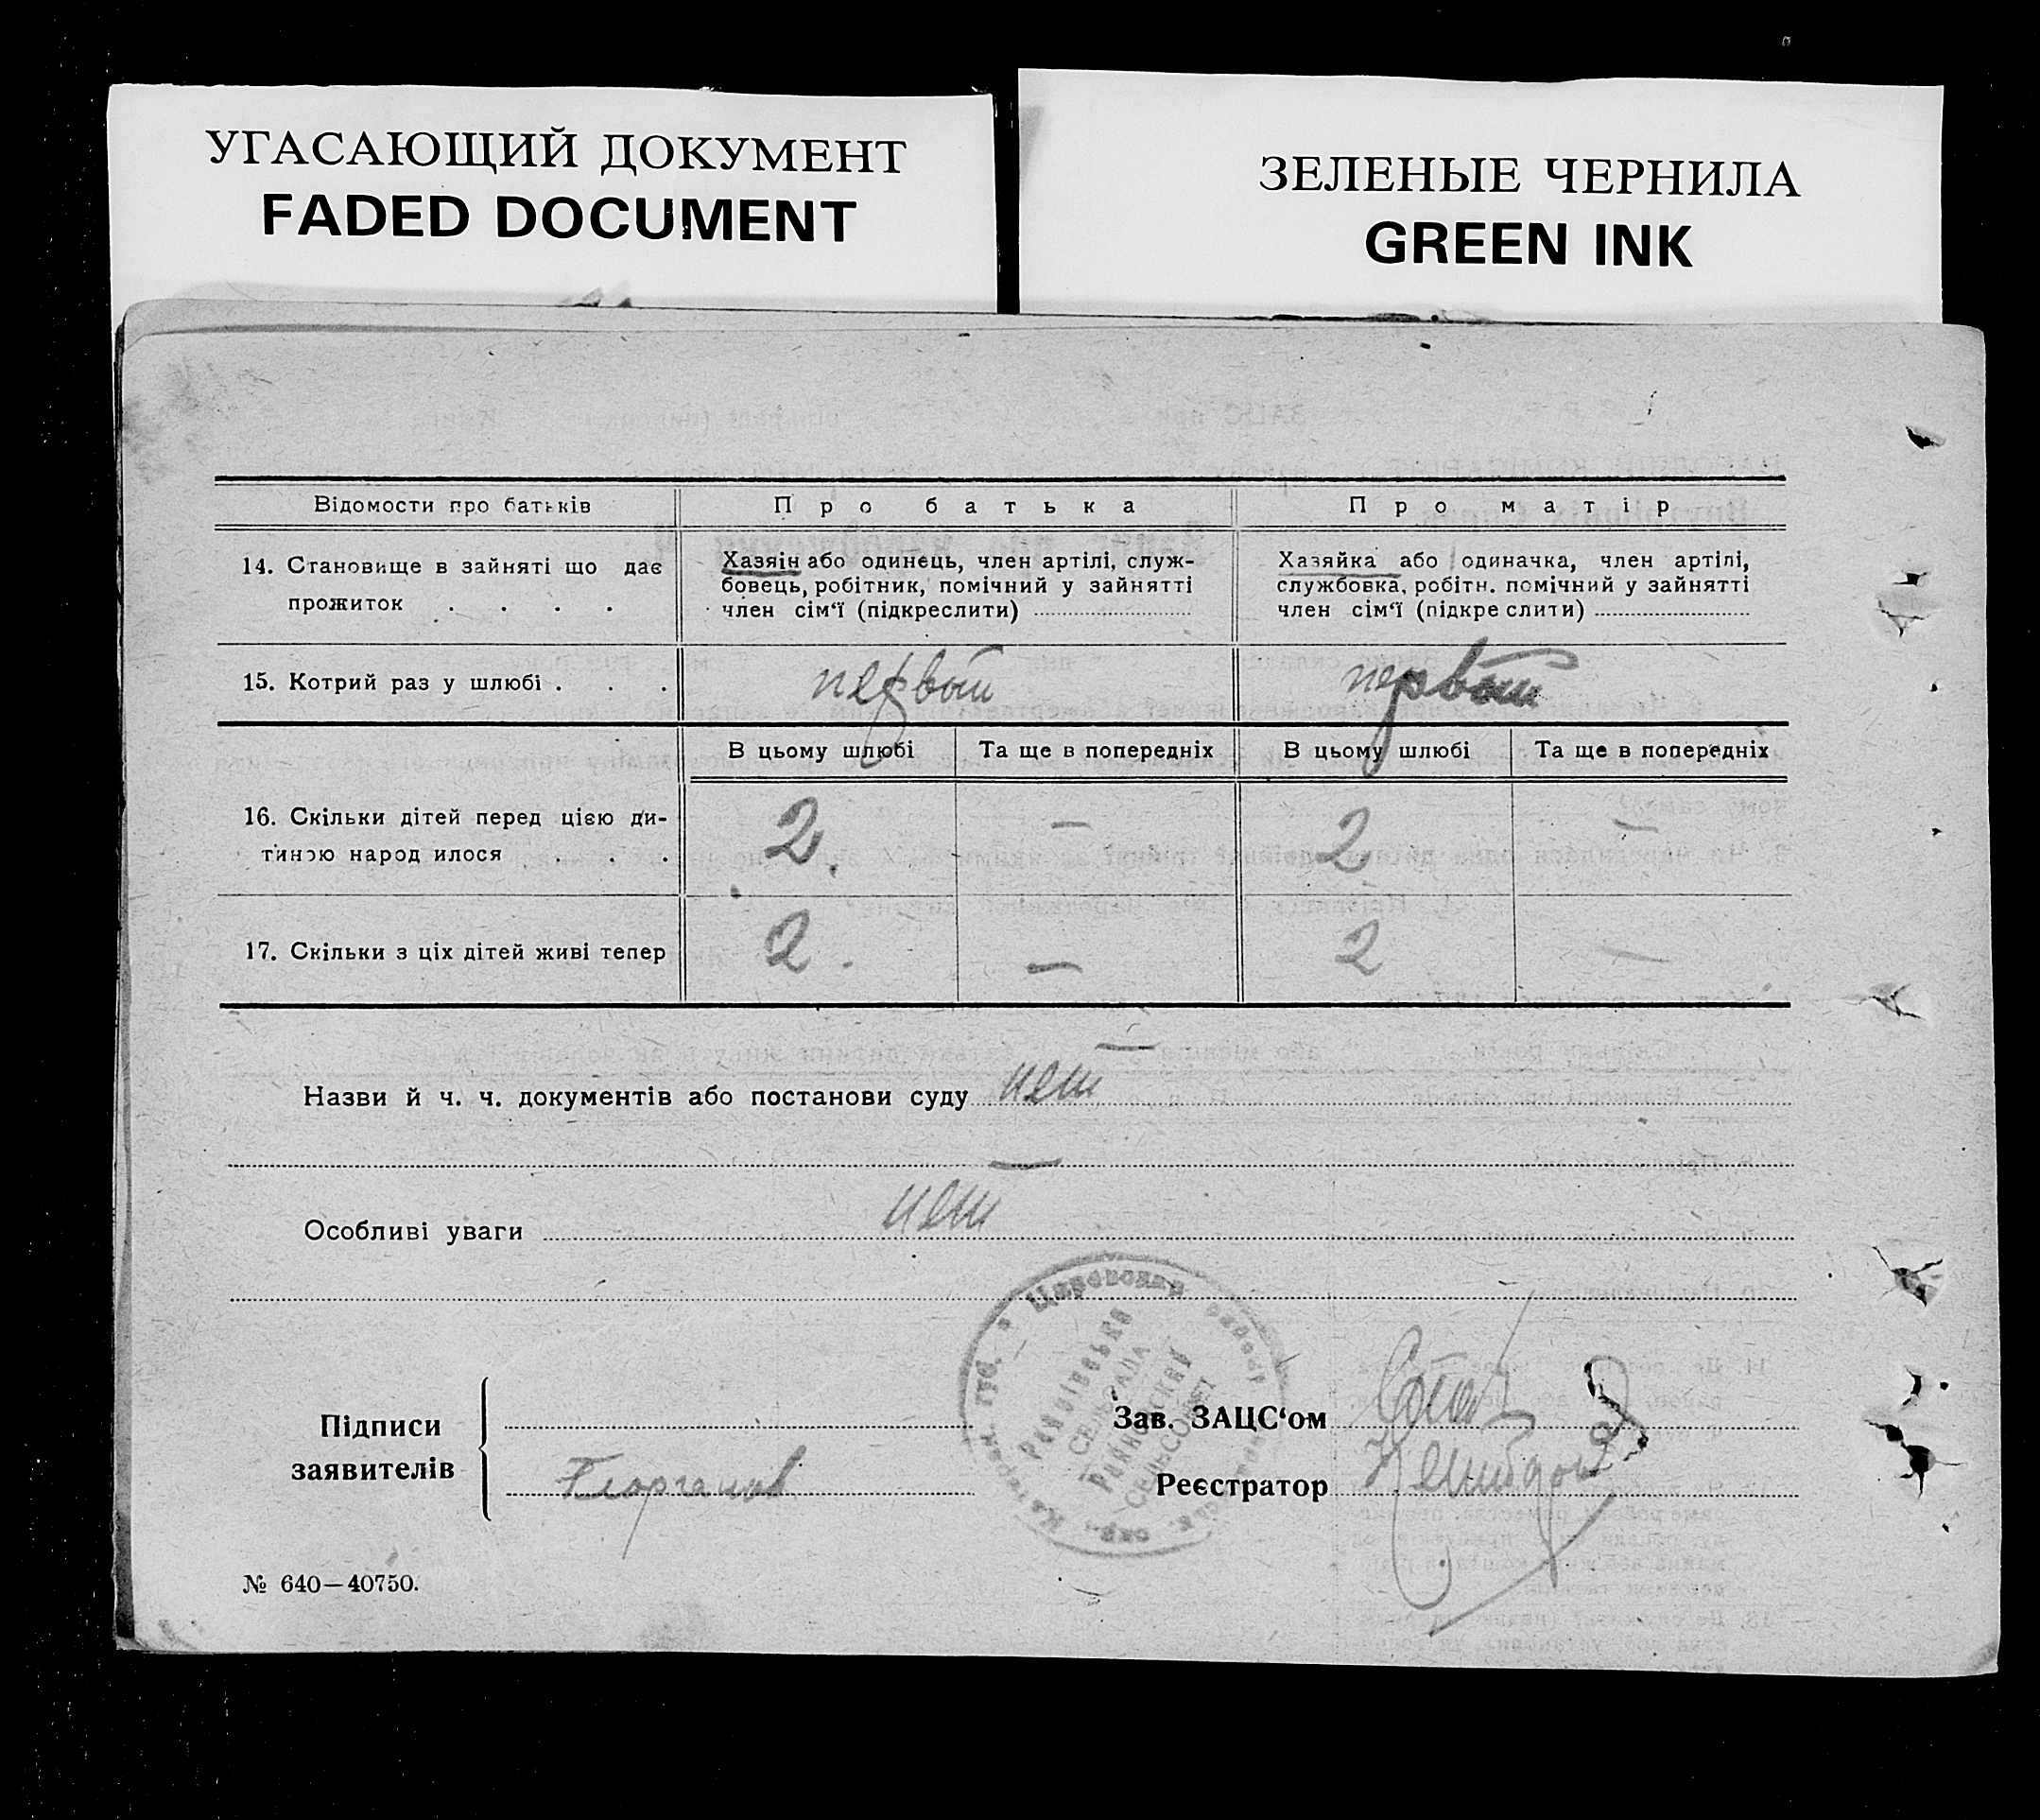 УГАСАЮЩИЙ ДОКУМЕНТ
FADED DOCUMENT
ЗЕЛЕНЫЕ ЧЕРНИЛА
GREEN INK
Відомости про батьків
Про батька
Про матір
14. Становище в зайняті що дає
прожиток . . . .
Хазяін або одинець, член артілі, служ-
бовець, робітник, помічний у зайнятті
член сім‘ї (підкреслити)
Хазяйка або одиначка, член артілі,
службовка, робітн. помічний у зайнятті
член сім‘ї (підкреслити)
15. Котрий раз у шлюбі . . .
первый
первый
В цьому шлюбі
Та ще в попередніх
В цьому шлюбі
Та ще в попередніх
16. Скільки дітей перед цією ди-
тиною народилося . . .
2.
—
2
—
17. Скільки з ціх дітей живі тепер
2.
—
2
—
Назви й ч. ч. документів або постанови суду нет
Особливі уваги нет
Підписи
заявителів
Зав. ЗАЦС‘ом
Реєстратор
Царевокая
СЕЛЬРАДА
СЕЛЬСОВЕТ
№ 640—40750.